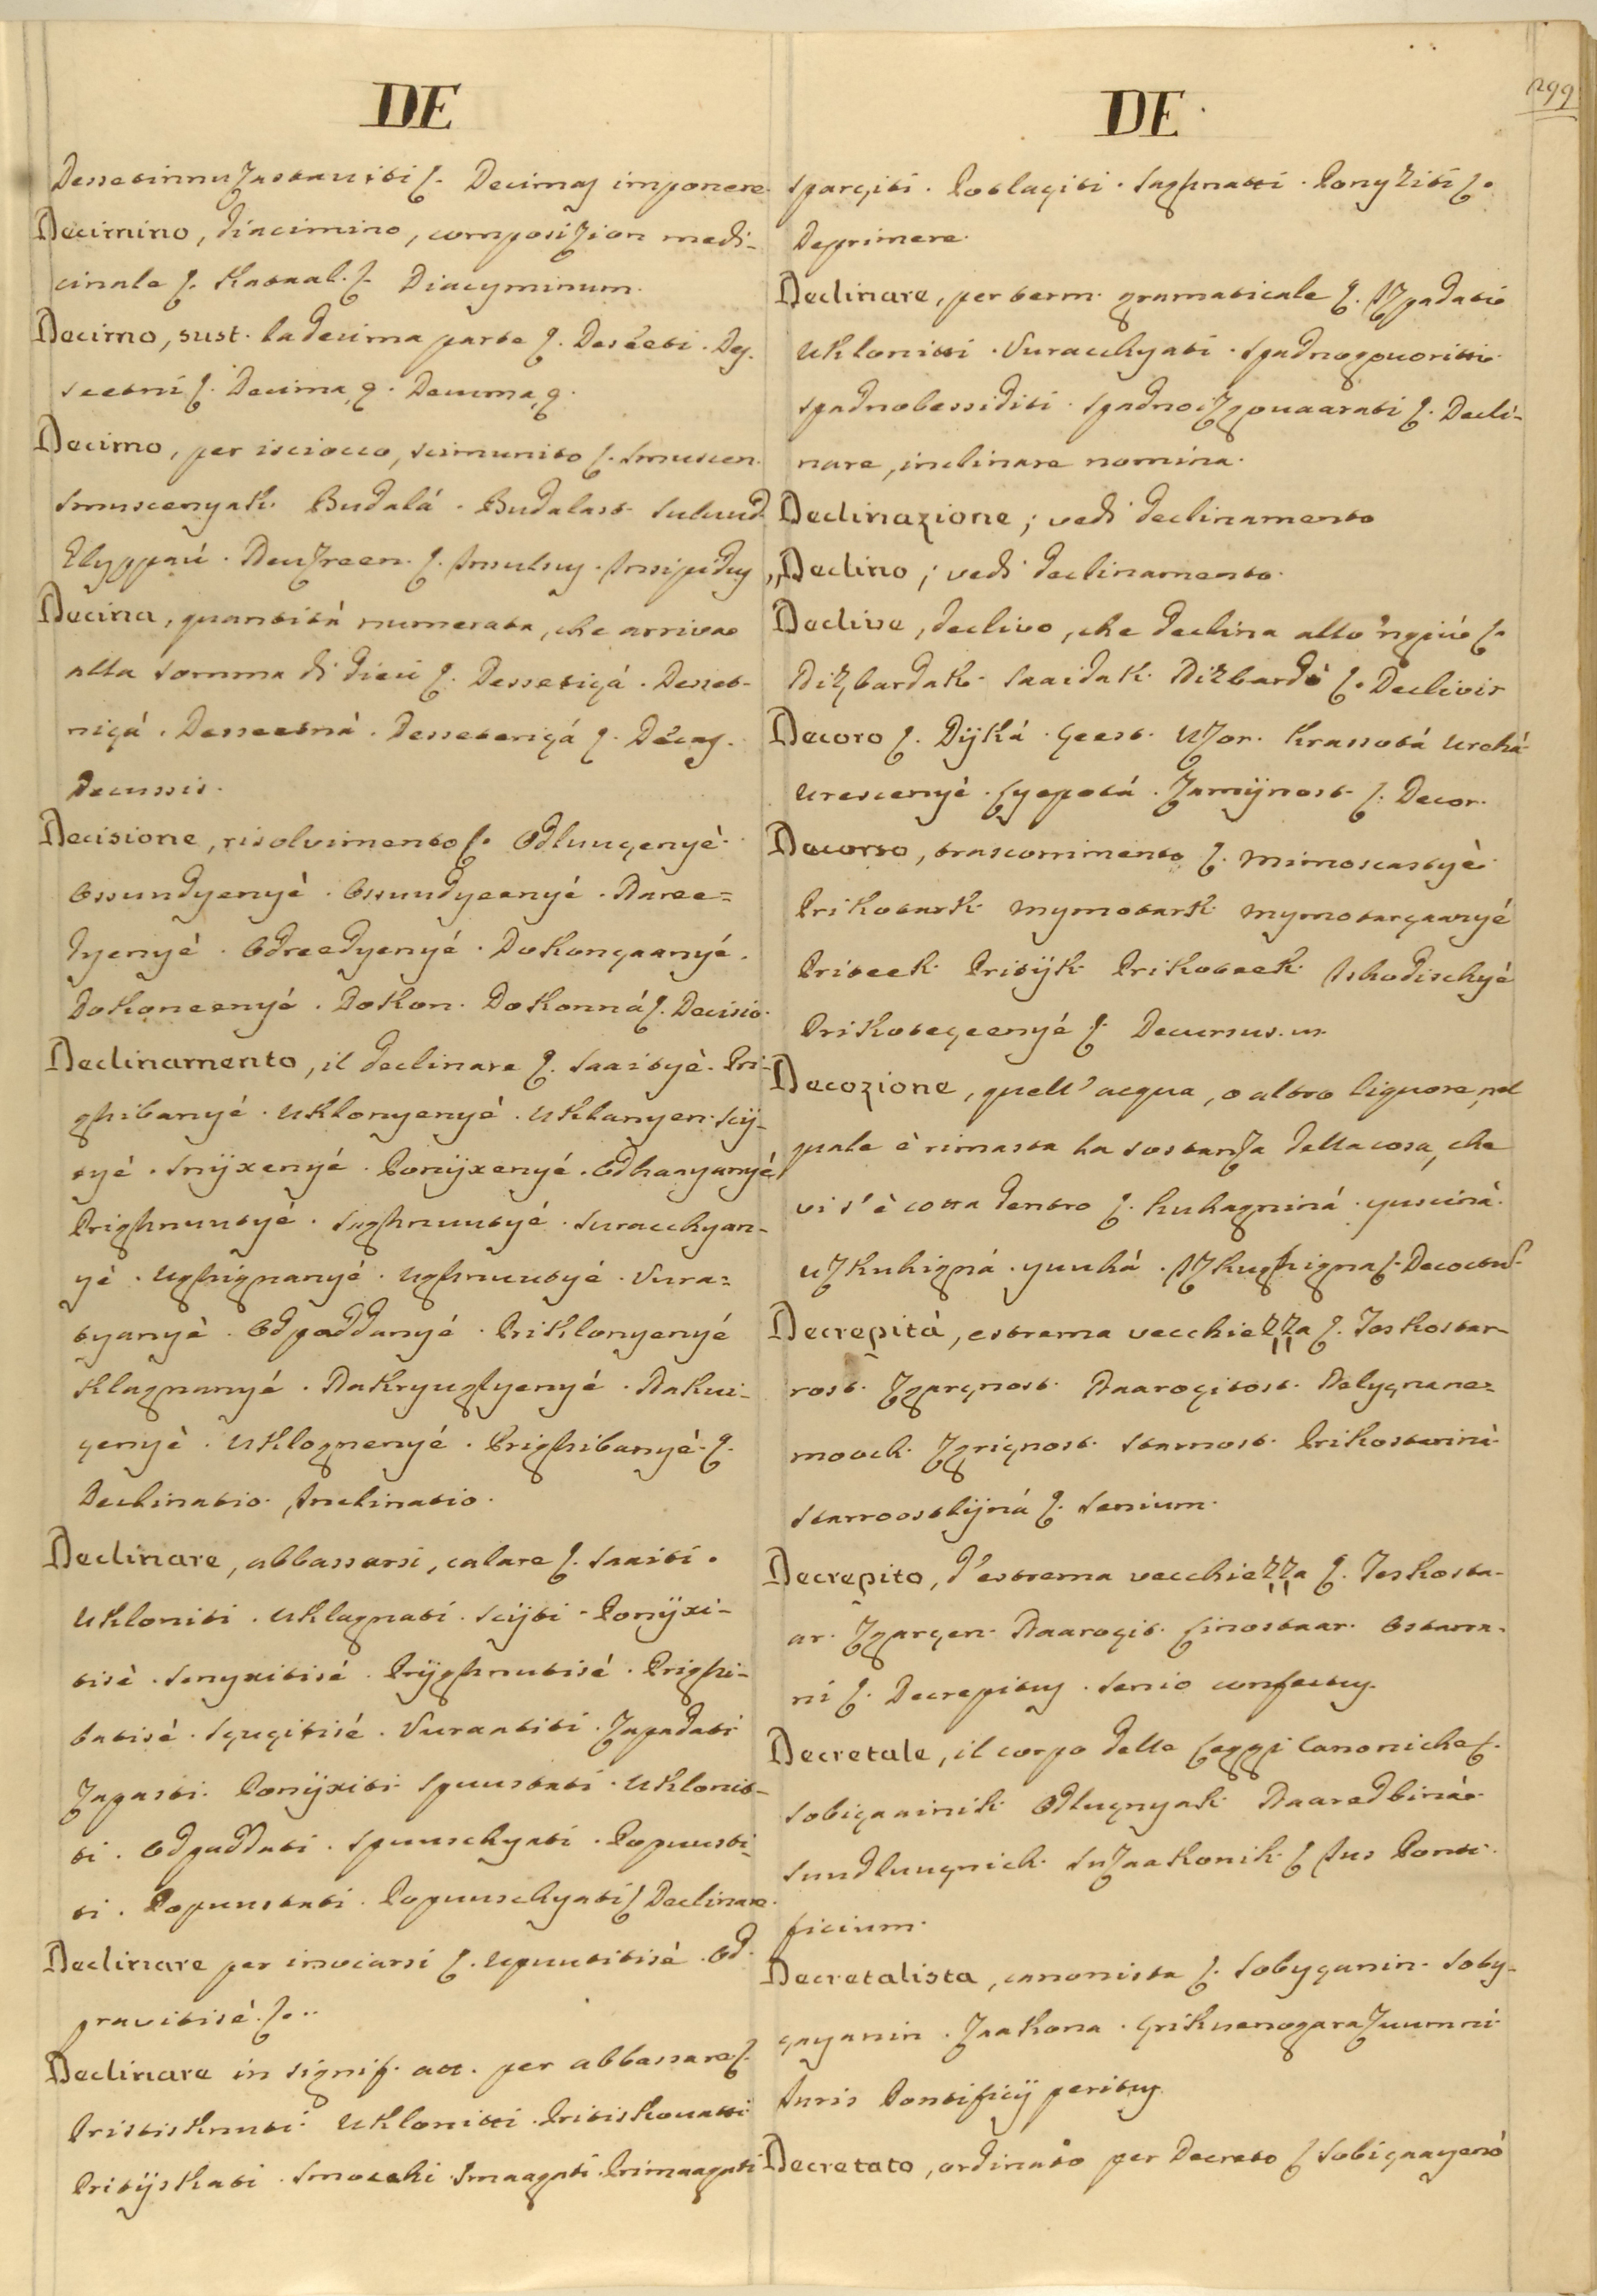 299
DE
Dessetinnu Zastaviti ſ. Decimas imponere.
Decimino, diacimino, composiZion medi-
cinale ſ. Kataal. ſ. Diacyminum.
Decimo, sust. la decima parte ſ. Deséeti. Des-
seetni ſ. Decima, ę. Decuma, ę.
Decimo, per isciocco, scimunito ſ. Smuscen.
Smuscenyak. Budalá. Budalast. Suluud.
Neuzreen. ſ. Insulsus. Insipidus
Decina, quantitá numerata, che arriva
alla somma di dieci ſ. Dessetiçá. Desset-
niçá. Desseetná. Desseteriçá ſ. Décas.
Decussis.
Decisione, risolvimento ſ. Odluuçenyè.
Ossundyenyè. Ossuudyeenyé. Naree=
dyenyè. Odreedyenyé. Dokonçaanyé.
Dokoneenyé. Dokon. Dokonná ſ. Decisio.
Declinamento, il declinare ſ. Saaityè. Pri-
ghibanyé. Uklonyenyè. Uklanyen. Scij-
tyé. Snijxenyé. Ponijxenyé. Odhaayanyé
Prighnuutyé. Saghnuutyé. Suracchyan-
yè. Ughignanyé. Ughnuutyé. Vura=
tyanyè. Odpaddanyé. Priklonyenyé
Klagnanyé. Nakryughyenyé. Nakui-
çenyè. Uklognenyé. Prighibanyè. ſ.
Declinatio. Inclinatio.
Declinare, abbassarsi, calare ſ. Saaiti.
Ukloniti. Uklagnati. Scijti. Ponijxi-
tisè. Sonyxitisé. Prijghnutisé. Prighi-
batisè. Sçuçitisé. Vuraatiti. Zapadati
Zapasti. Ponijxiti. Spuustati. Uklonit-
ti. Odpaddati. Spuuschyati. Popuusti-
ti. Popuustati. Popuuschyati ſ Declinare.
Declinare per inviarsi ſ. Upuutitisè. Od-
pravitisè. ſ...
Declinare in signif. att. per abbassare ſ.
Pristisknuti. Uklonitti. Pritiskouatti
Pritijskati. Smoçchi. Smaagati. Primaagati
DE
Sparçiti. Potlaçiti. Saghnatti. Ponyziti ſ.
Deprimere.
Declinare, per term. gramaticale ſ. IZpadati
Uklonitti. Vuracchyati. Spadnogouoritti
Spadnobessiditi. Spadnoizgouaarati ſ. Decli-
nare, inclinare nomina.
Declinazione; vedi declinamento
„Declino; vedi declinamento.
Declive, declivo, che declina allo 'ngiú ſ.
Nizbardak. Saaidak. Nizbardò ſ. Declivis
Decoro ſ. Dijká. Çeest. Uzor. Krassotá Urehá
Urescenyé. Lyepotá. Zamijnost ſ. Decor.
Decorso, trascorrimento ſ. Mimoscastyè.
Prikotark. Mymotark. Mymotarçaanyé
Priteek. Pritijk. Prikoteek. Ishodischyé
Prikoteçeenyé ſ. Decursus. us.
Decozione, quell' acqua, o altro liquore, nel
quale è rimasta la sostanZa della cosa, che
vi s' è cotta dentro ſ. Kuhagniná. yusciná.
uZkuhigná. yuuhá. IZkughigna ſ. Decoctus.
Decrepità, estrema vecchiezza ſ. Teskostar-
rost. Zgarçnost. Naaroçitost. Delyçnane=
mooch. Zgriçnost. Starnost. Prikostarinà.
Starroostlijná ſ. Senium.
Decrepito, d'estrema vecchiezza ſ. Teskosta-
ar. Zgarçen. Naaroçit. Linostaar. Ostarra-
ni ſ. Decrepitus. Senio confectus.
Decretale, il corpo delle Leggi Canoniche ſ.
Sobiçaainik. Odluçnyak. Naaredbinà.
Suudluuçnich. Suzaakonik ſ Ius Ponti-
ficium.
Decretalista, canonista ſ. Sobyçanin. Soby-
çayanin. Zaakona. Çriknenogara Zuumni.
Iuris Pontificij peritus.
Decretato, ordinato per Decreto ſ Sobiçaayenò